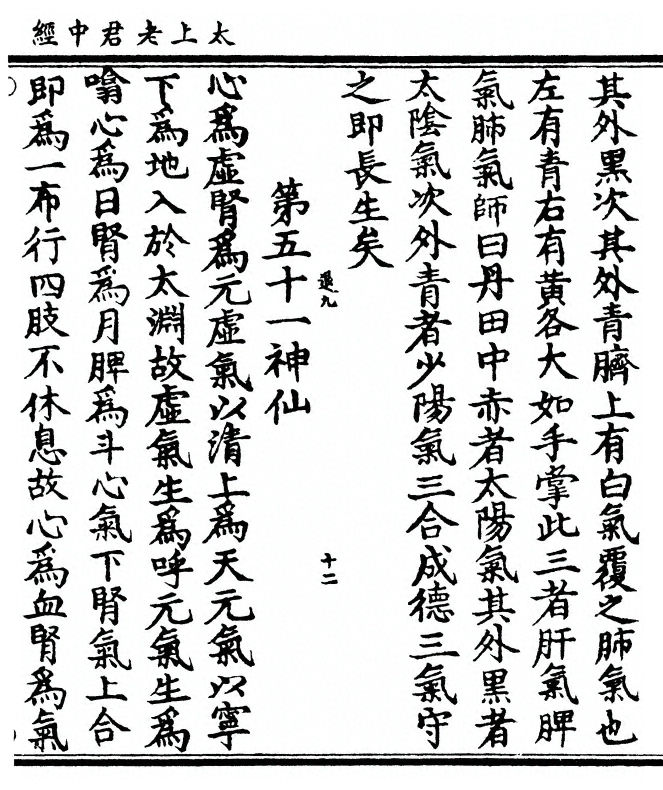 太上老君中經
其外黑次其外青臍上有白氣覆之肺氣也
左有青右有黃各大如手掌此三者肝氣脾
氣肺氣師曰丹田中赤者太陽氣其外黑者
太陰氣次外青者少陽氣三合成德三氣守
之即長生矣
退九
十二
第五十一神仙
心爲虛腎爲元虛氣以清上爲天元氣以寧
下爲地入於太淵故虛氣生爲呼元氣生爲
噏心爲日腎爲月脾爲斗心氣下腎氣上合
即爲一布行四肢不休息故心爲血腎爲氣